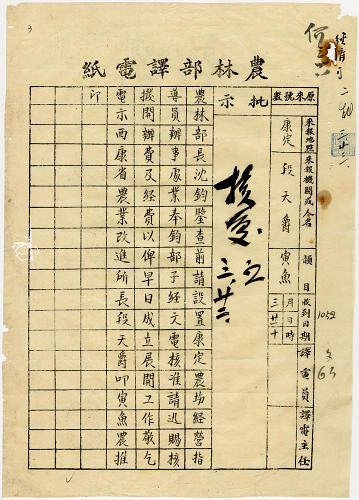 農林部譯電紙
原來號數
批示
來報地點
康定
來報機關或人名
段天爵
韻目
寅魚
收到日期
月日時
三廿十
譯電員
譯電主任
1052
農林部長沈鈞鑒查前請設置康定農場經營指
導員辦事處業奉鈞部子經文電核准請迅賜核
撥開辦費及經費以俾早日成立展開工作敬乞
電示西康省農業改進所長段天爵叩寅魚農推
印
3